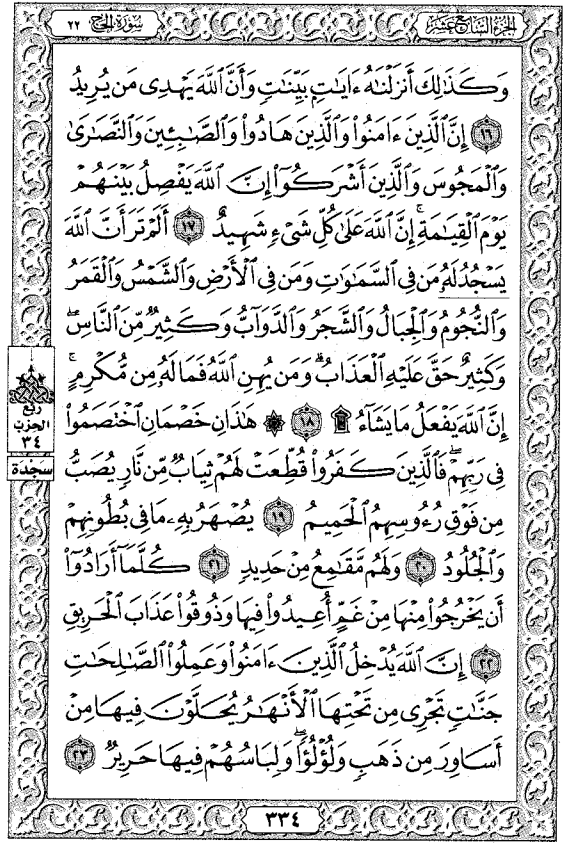 الجزء السابع عشر
سورة الحج ٢٢
وَكَذَٰلِكَ أَنزَلْنَٰهُ ءَايَٰتٍۭ بَيِّنَٰتٍ وَأَنَّ ٱللَّهَ يَهْدِى مَن يُرِيدُ
١٦ إِنَّ ٱلَّذِينَ ءَامَنُوا۟ وَٱلَّذِينَ هَادُوا۟ وَٱلصَّٰبِـِٔينَ وَٱلنَّصَٰرَىٰ
وَٱلْمَجُوسَ وَٱلَّذِينَ أَشْرَكُوٓا۟ إِنَّ ٱللَّهَ يَفْصِلُ بَيْنَهُمْ
يَوْمَ ٱلْقِيَٰمَةِ ۚ إِنَّ ٱللَّهَ عَلَىٰ كُلِّ شَىْءٍ شَهِيدٌ ١٧ أَلَمْ تَرَ أَنَّ ٱللَّهَ
يَسْجُدُ لَهُۥ مَن فِى ٱلسَّمَٰوَٰتِ وَمَن فِى ٱلْأَرْضِ وَٱلشَّمْسُ وَٱلْقَمَرُ
وَٱلنُّجُومُ وَٱلْجِبَالُ وَٱلشَّجَرُ وَٱلدَّوَآبُّ وَكَثِيرٌ مِّنَ ٱلنَّاسِ ۖ
وَكَثِيرٌ حَقَّ عَلَيْهِ ٱلْعَذَابُ ۗ وَمَن يُهِنِ ٱللَّهُ فَمَا لَهُۥ مِن مُّكْرِمٍ ۚ
إِنَّ ٱللَّهَ يَفْعَلُ مَا يَشَآءُ ۩ ١٨ ۞ هَٰذَانِ خَصْمَانِ ٱخْتَصَمُوا۟
فِى رَبِّهِمْ ۖ فَٱلَّذِينَ كَفَرُوا۟ قُطِّعَتْ لَهُمْ ثِيَابٌ مِّن نَّارٍ يُصَبُّ
مِن فَوْقِ رُءُوسِهِمُ ٱلْحَمِيمُ ١٩ يُصْهَرُ بِهِۦ مَا فِى بُطُونِهِمْ
وَٱلْجُلُودُ ٢٠ وَلَهُم مَّقَٰمِعُ مِنْ حَدِيدٍ ٢١ كُلَّمَآ أَرَادُوٓا۟
أَن يَخْرُجُوا۟ مِنْهَا مِنْ غَمٍّ أُعِيدُوا۟ فِيهَا وَذُوقُوا۟ عَذَابَ ٱلْحَرِيقِ
٢٢ إِنَّ ٱللَّهَ يُدْخِلُ ٱلَّذِينَ ءَامَنُوا۟ وَعَمِلُوا۟ ٱلصَّٰلِحَٰتِ
جَنَّٰتٍ تَجْرِى مِن تَحْتِهَا ٱلْأَنْهَٰرُ يُحَلَّوْنَ فِيهَا مِنْ
أَسَاوِرَ مِن ذَهَبٍ وَلُؤْلُؤًا ۖ وَلِبَاسُهُمْ فِيهَا حَرِيرٌ ٢٣
ربع
الحزب
٣٤
سجدة
٣٣٤